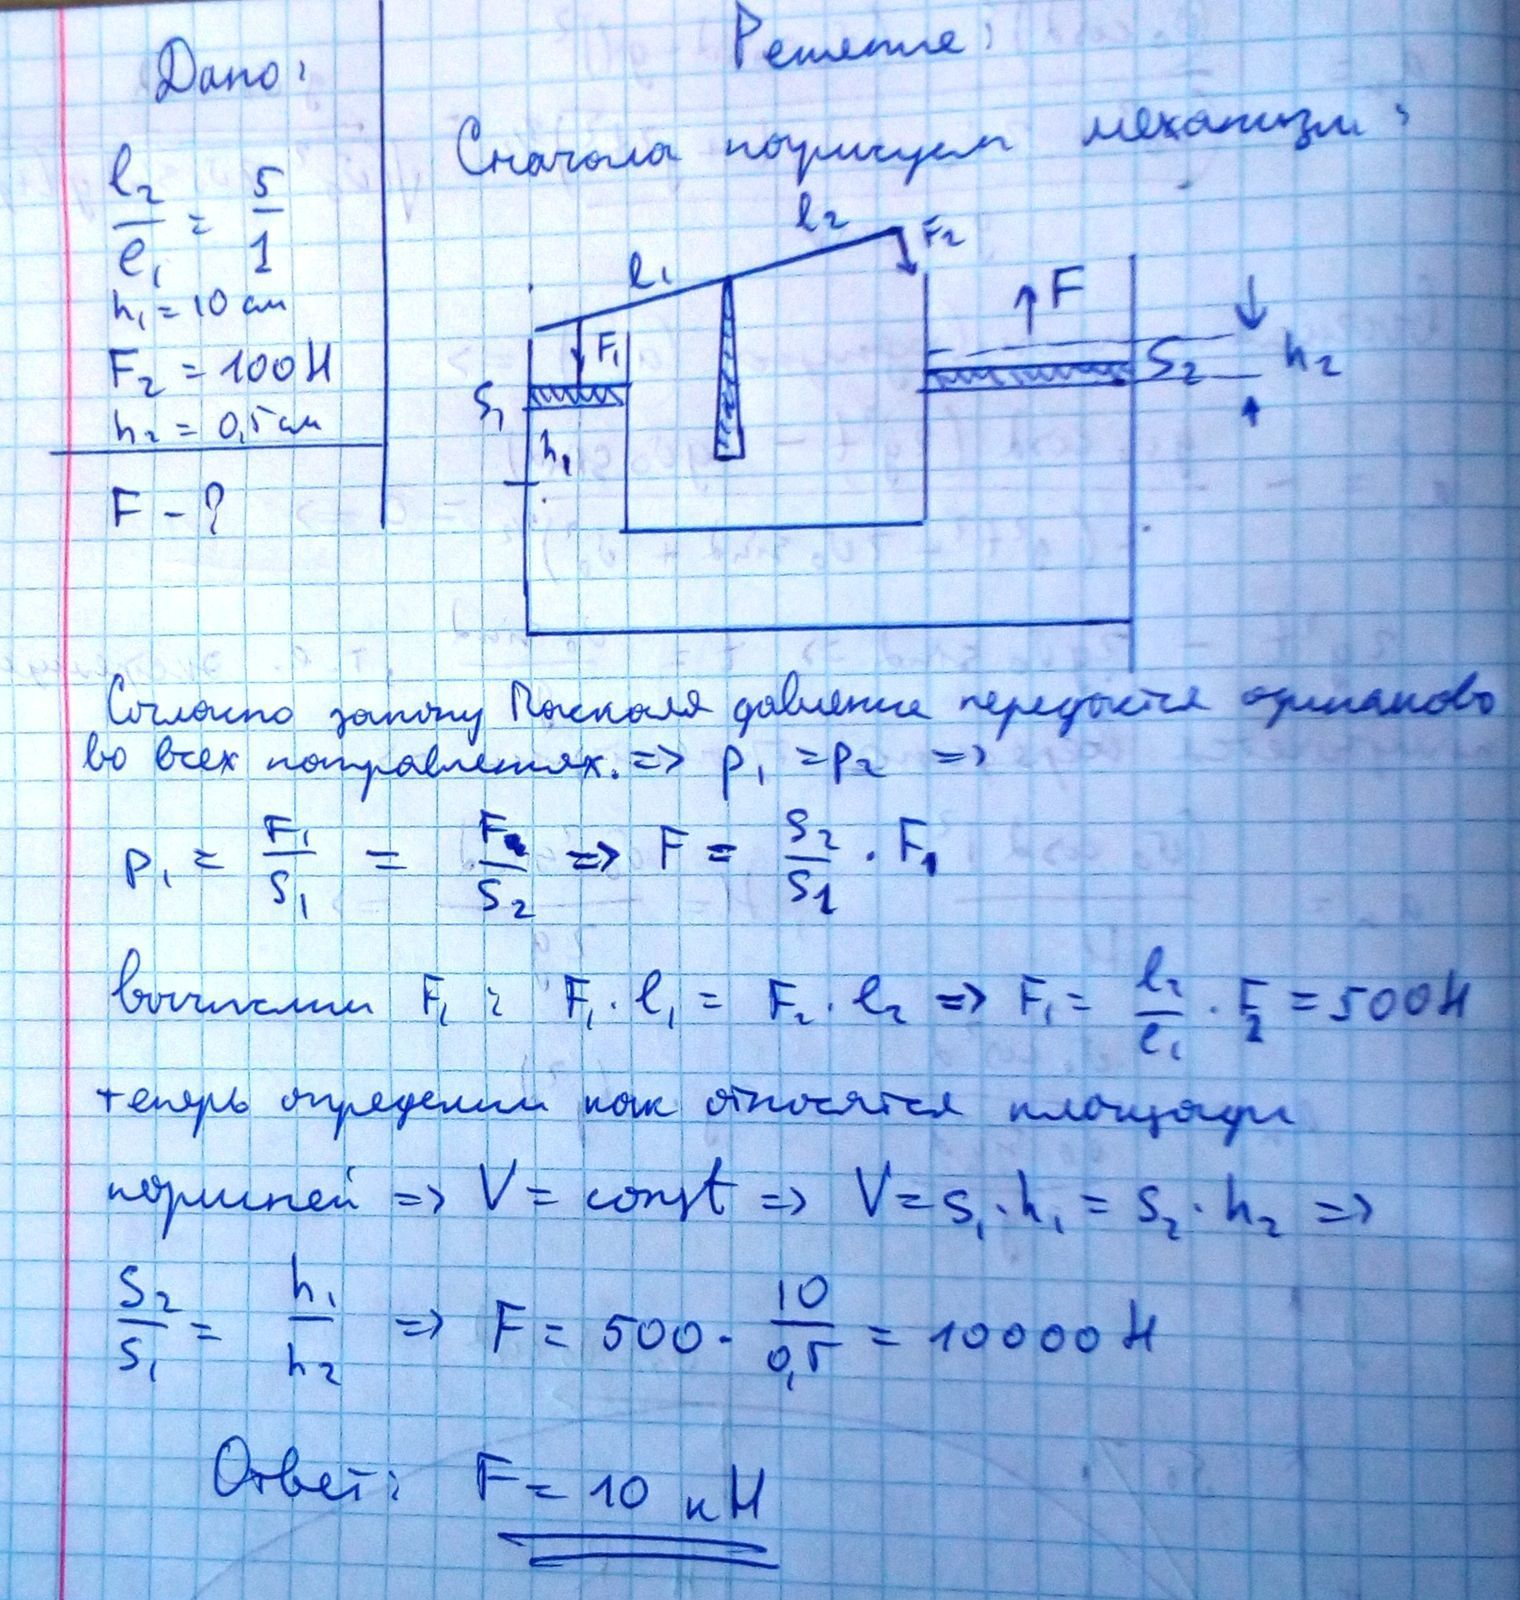 Дано:
l₂/l₁ = 5/1
h₁ = 10 см
F₂ = 100 Н
h₂ = 0,5 см
F - ?
Решение:
Сначала нарисуем механизм:
l₁
l₂
F₂
F₁
F
S₁
h₁
S₂
h₂
Согласно закону Паскаля давление передаётся одинаково
во всех направлениях. => p₁ = p₂ =>
p₁ = F₁/S₁ = F/S₂ => F = S₂/S₁ · F₁
Вычислим F₁: F₁ · l₁ = F₂ · l₂ => F₁ = l₂/l₁ · F₂ = 500 Н
теперь определим как относятся площади
поршней => V = const => V = S₁ · h₁ = S₂ · h₂ =>
S₂/S₁ = h₁/h₂ => F = 500 · 10/0,5 = 10000 Н
Ответ: F = 10 кН